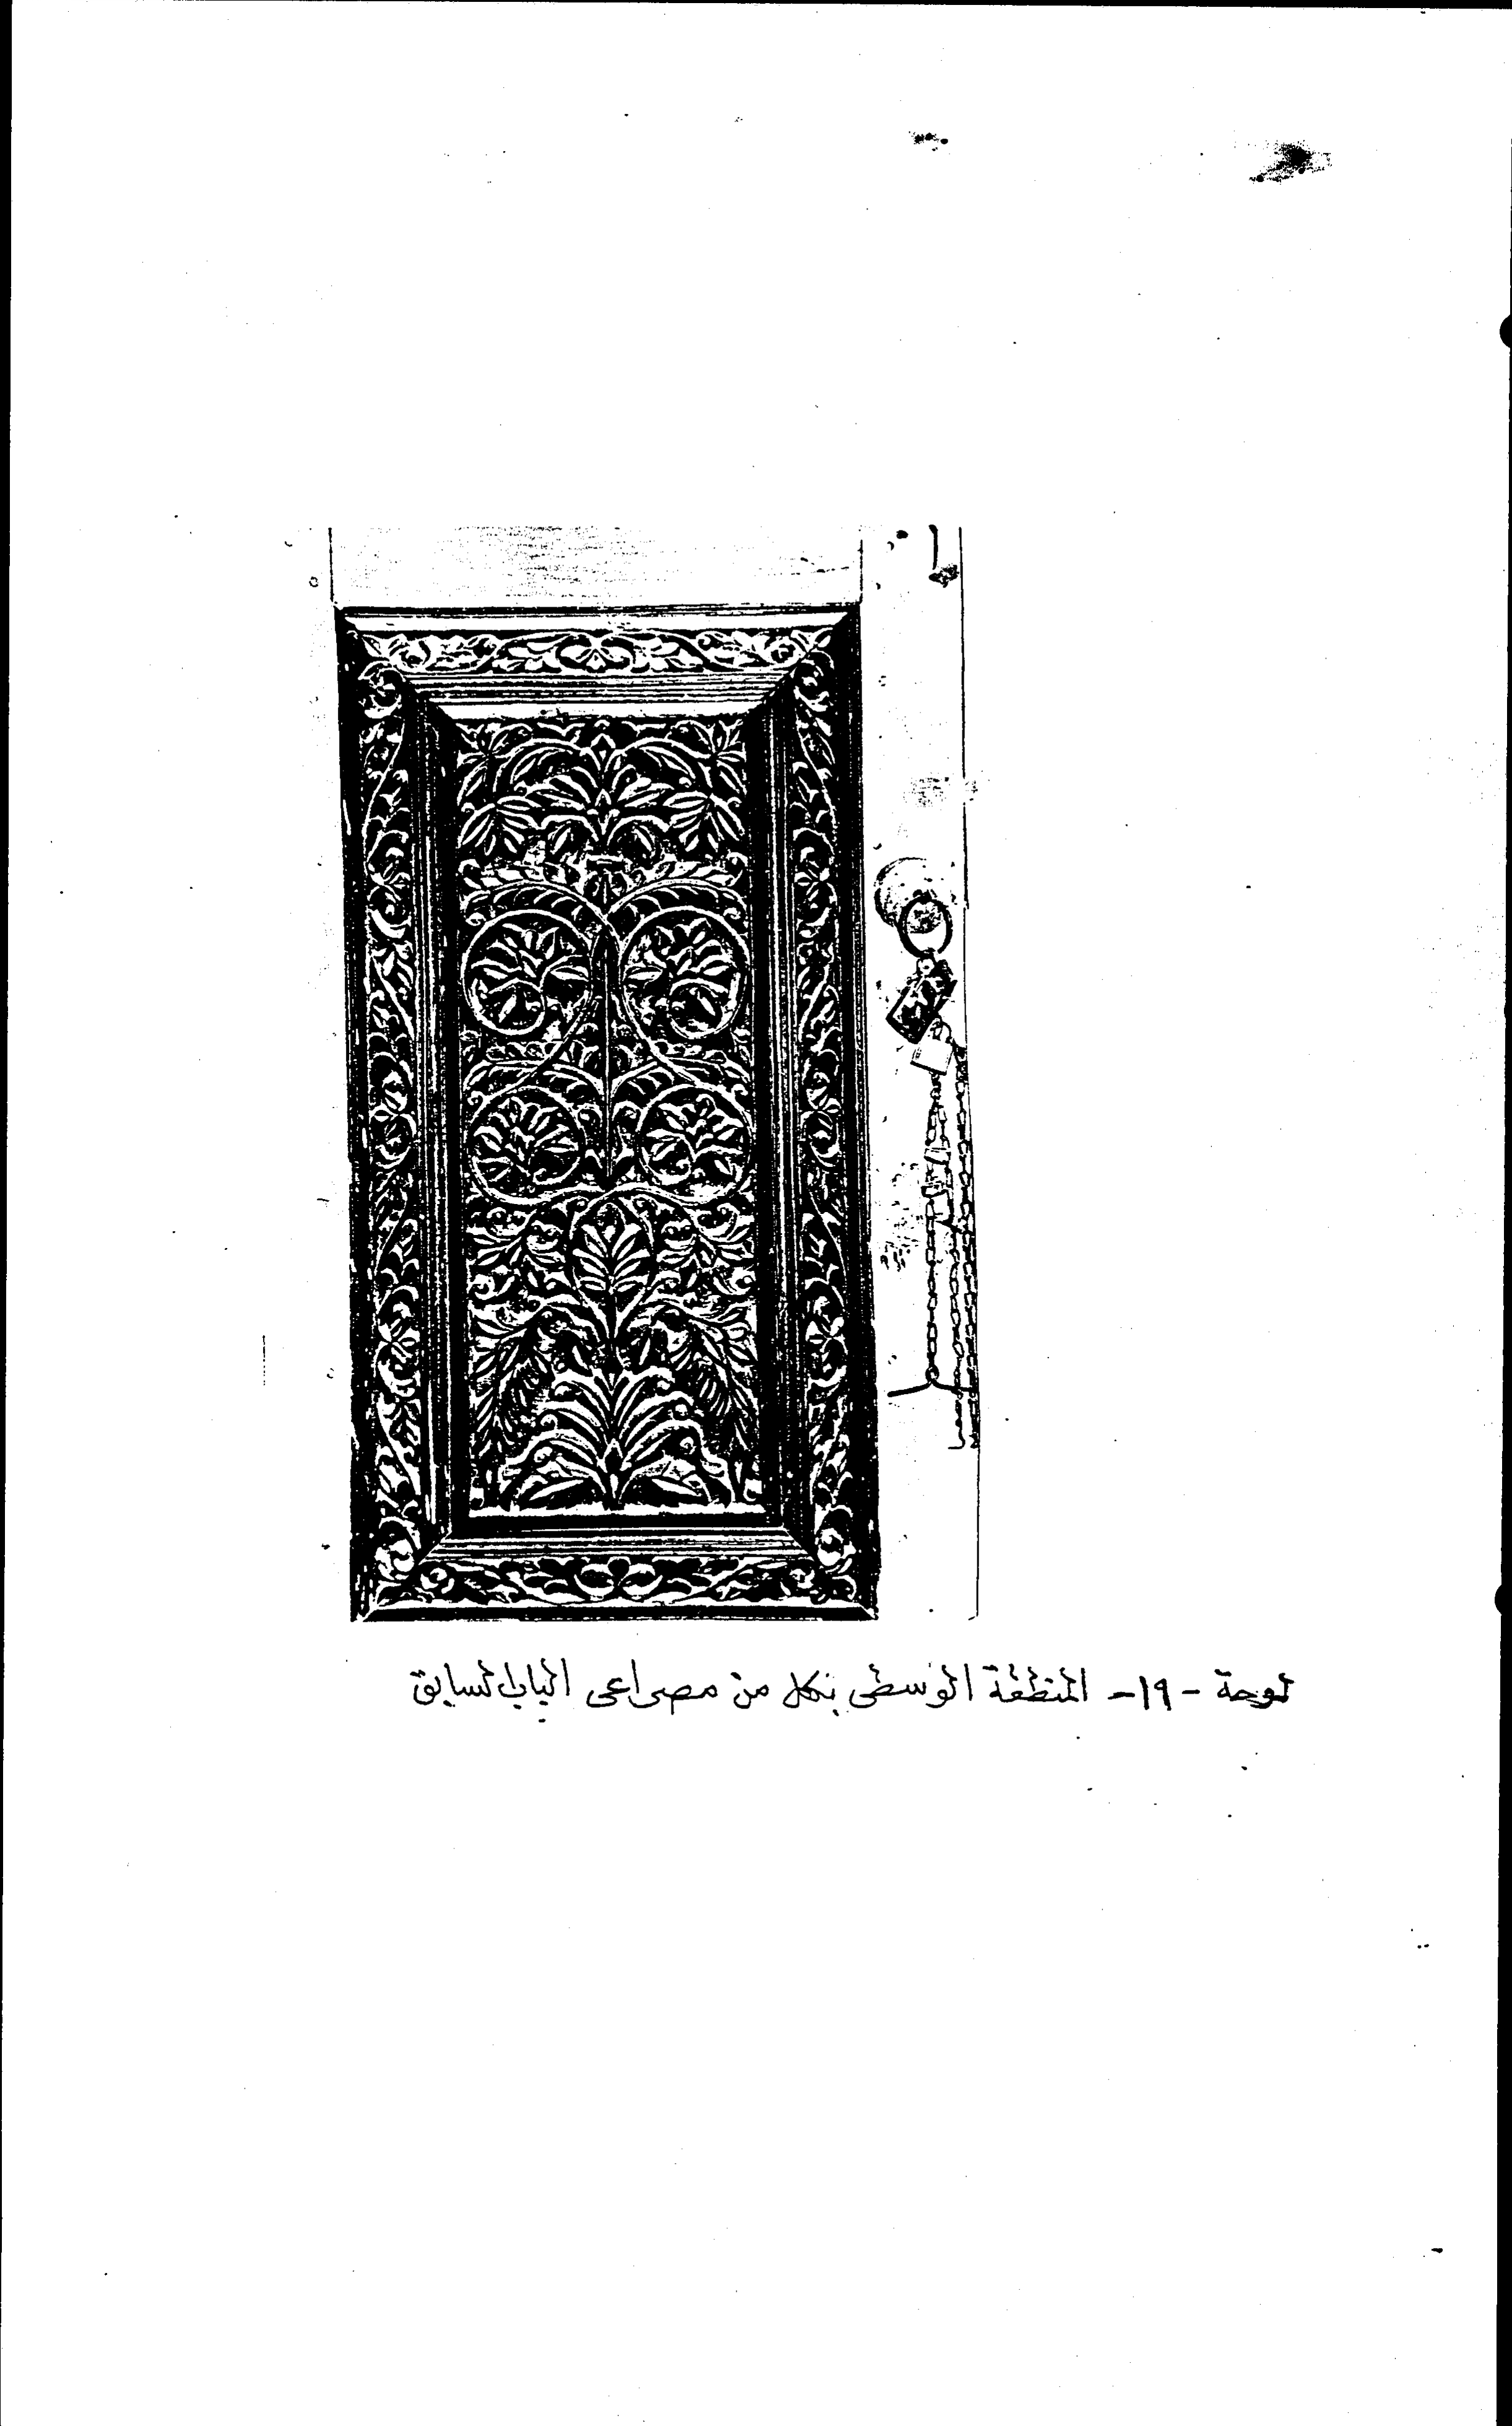 لوحة - ١٩- المنطقة الوسطى بكل من مصراعى الباب السابق